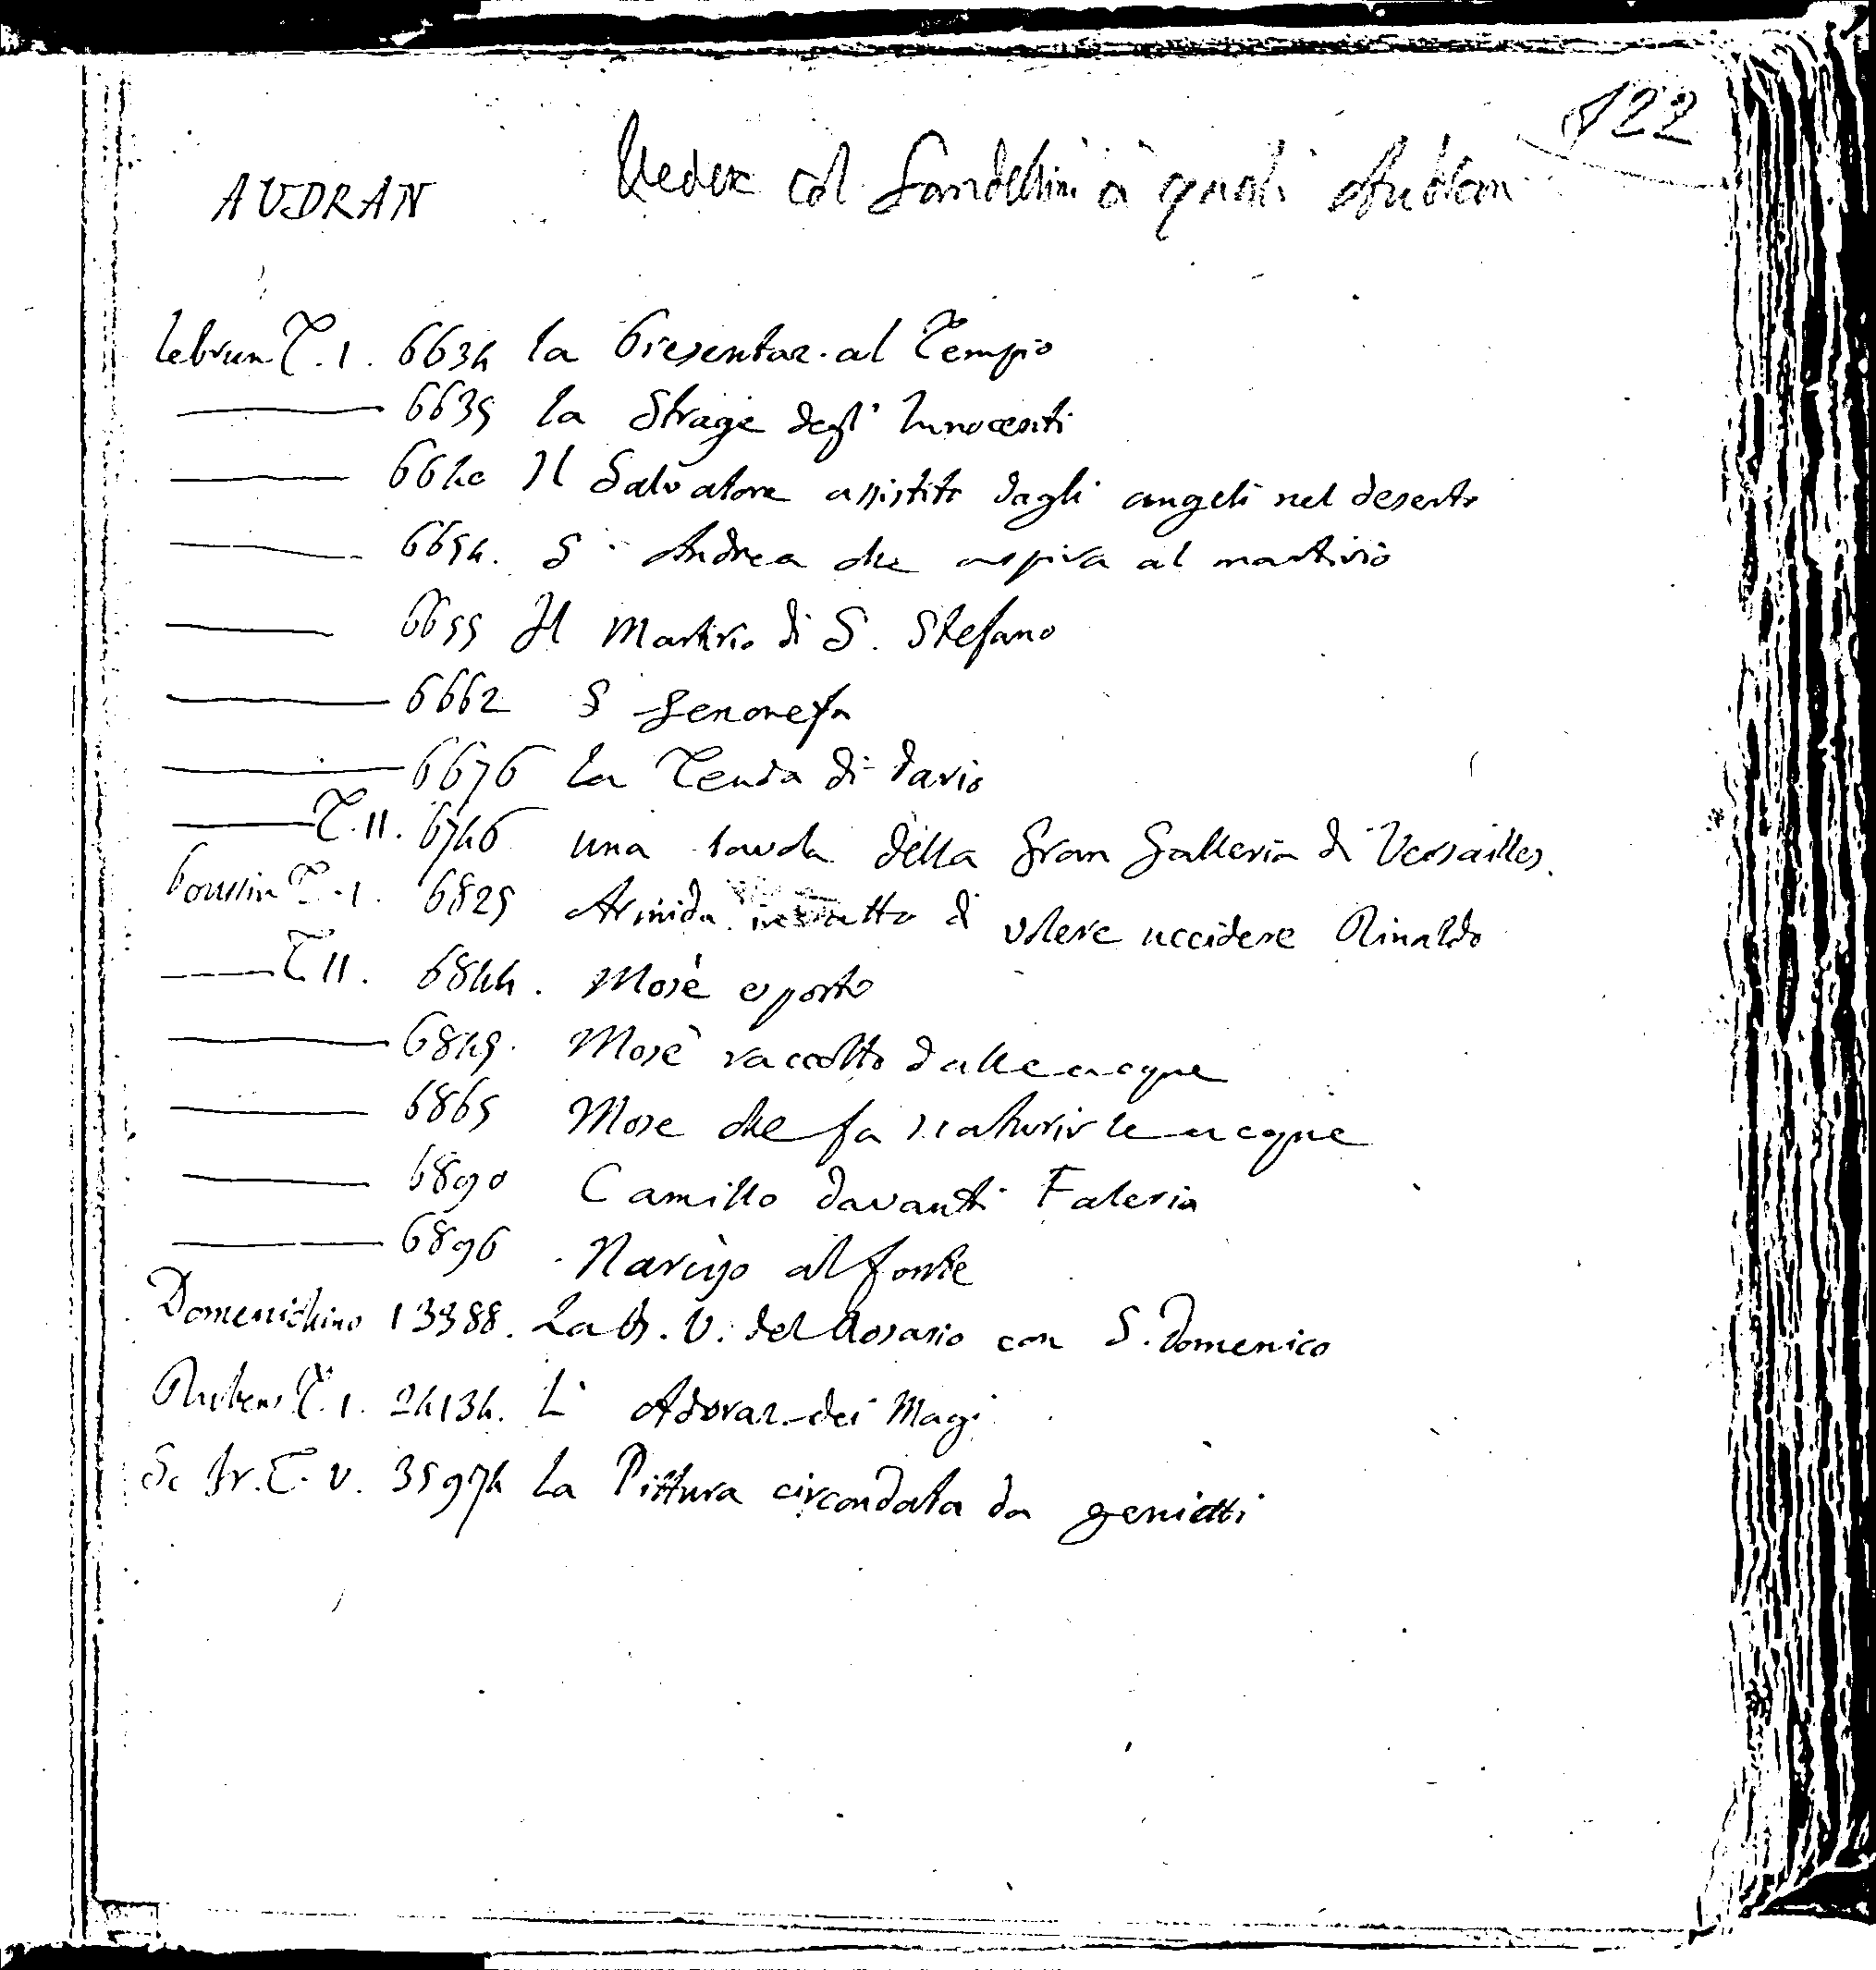 122
AUDRAN Veder col Gandellini a quali Audran
Lebrun T. I. 6634 la Presentaz. al Tempio
6635 la Strage degl' Innocenti
6640 Il Salvatore assistito dagli angeli nel deserto
6654. S. Andrea che aspira al martirio
6655 Il Martirio di S. Stefano
6662 S Genovefa
6676 La Tenda di Dario
T. II. 6746 una tavola della Gran Galleria di Versailles.
Poussin T. I. 6825 Armida in atto di volere uccidere Rinaldo
T II. 6844. Mosè esposto
6849. Mosè raccolto dalle acque
6865 Mose che fa scaturir le acque
6890 Camillo davanti Faleria
6896 Narciso al fonte
Domenichino 13388. La B. V. del Rosario con S. Domenico
Rubens T. I. 24134. L' Adoraz. dei Magi
Sc fr. T. V. 35974 La Pittura circondata da genietti